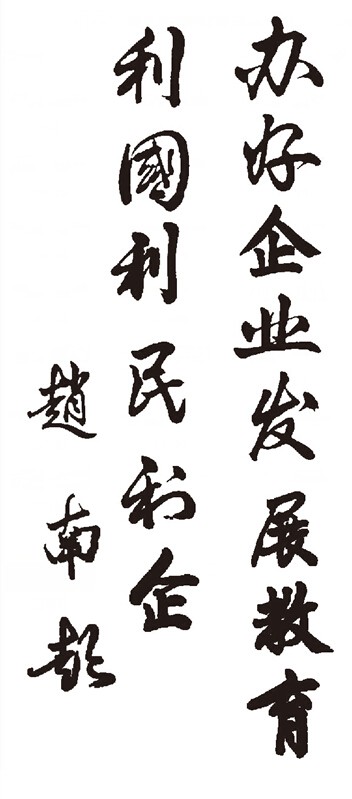 办好企业发展教育
利國利民利企
趙南起